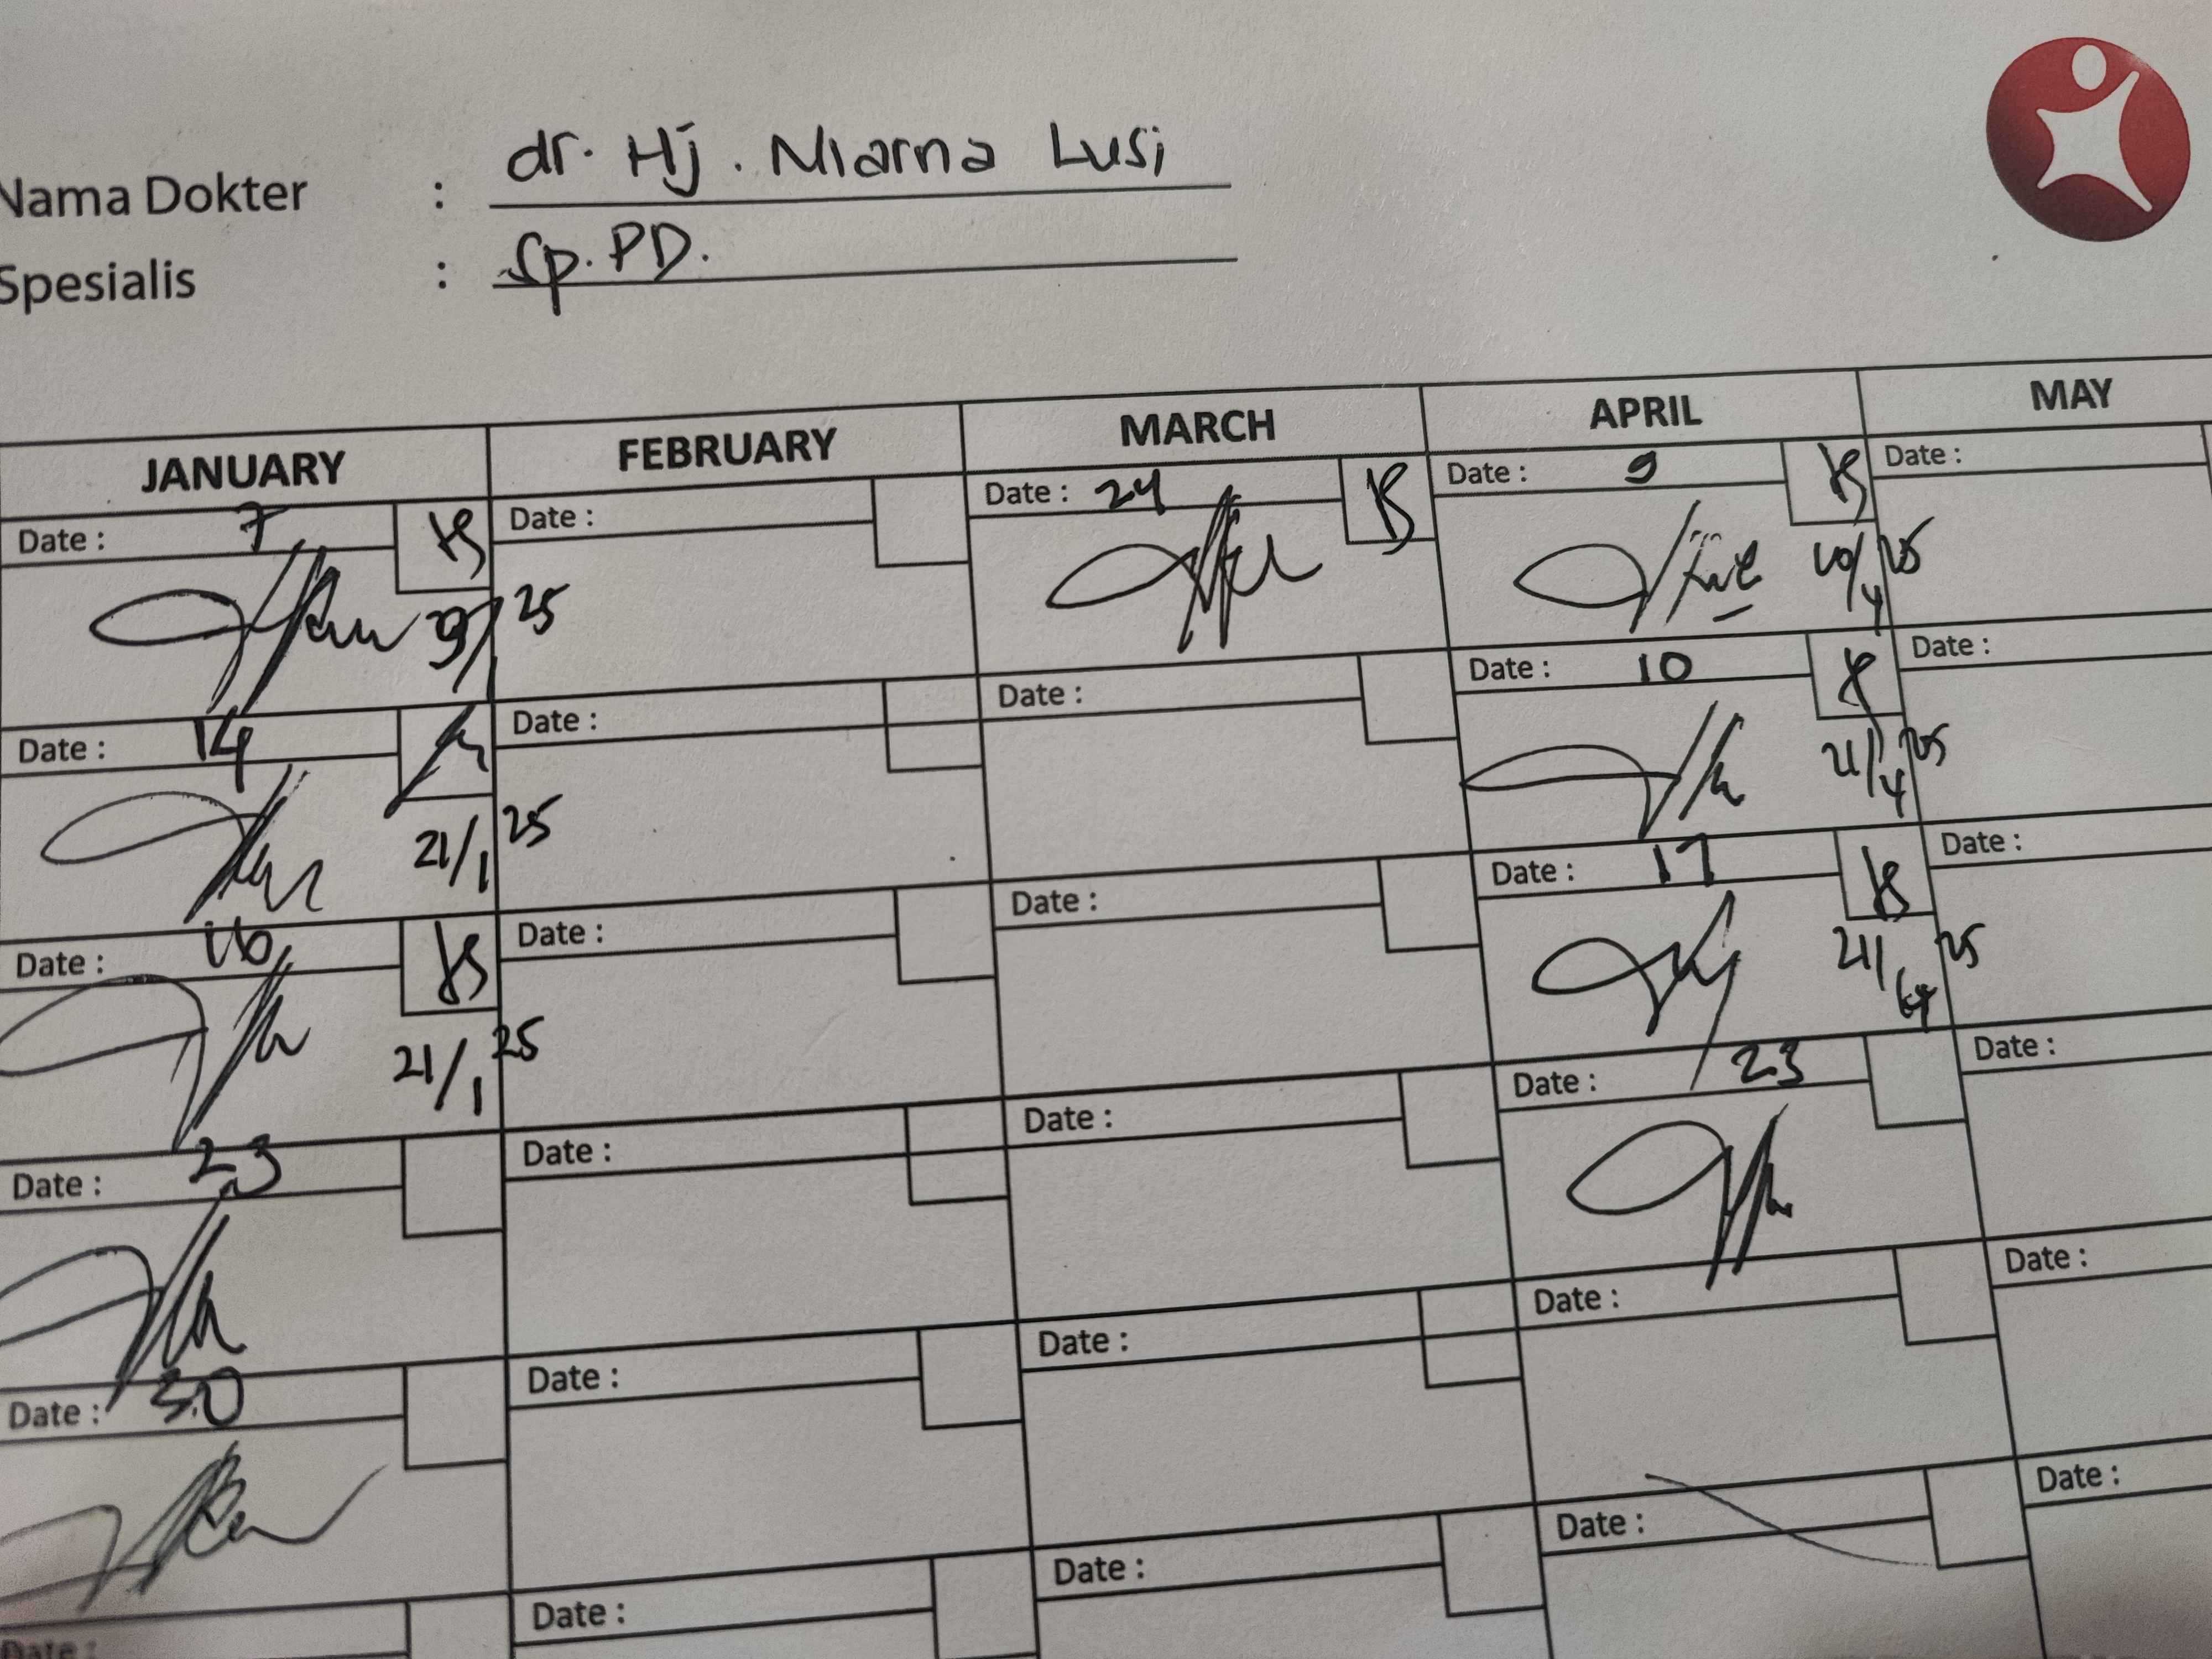 Nama Dokter : dr. Hj. Niarna Lusi
Spesialis : Sp.PD.
JANUARY FEBRUARY MARCH APRIL MAY
Date : 7 Date : Date : 24 Date : 9 Date :
9/1 25 10/4 25
Date : 14 Date : Date : Date : 10 Date :
21/1 25 21/4 25
Date : 16 Date : Date : Date : 17 Date :
21/1 25 21/4 25
Date : 23 Date : Date : Date : 23 Date :
Date : 30 Date : Date : Date : Date :
Date : Date : Date : Date : Date :